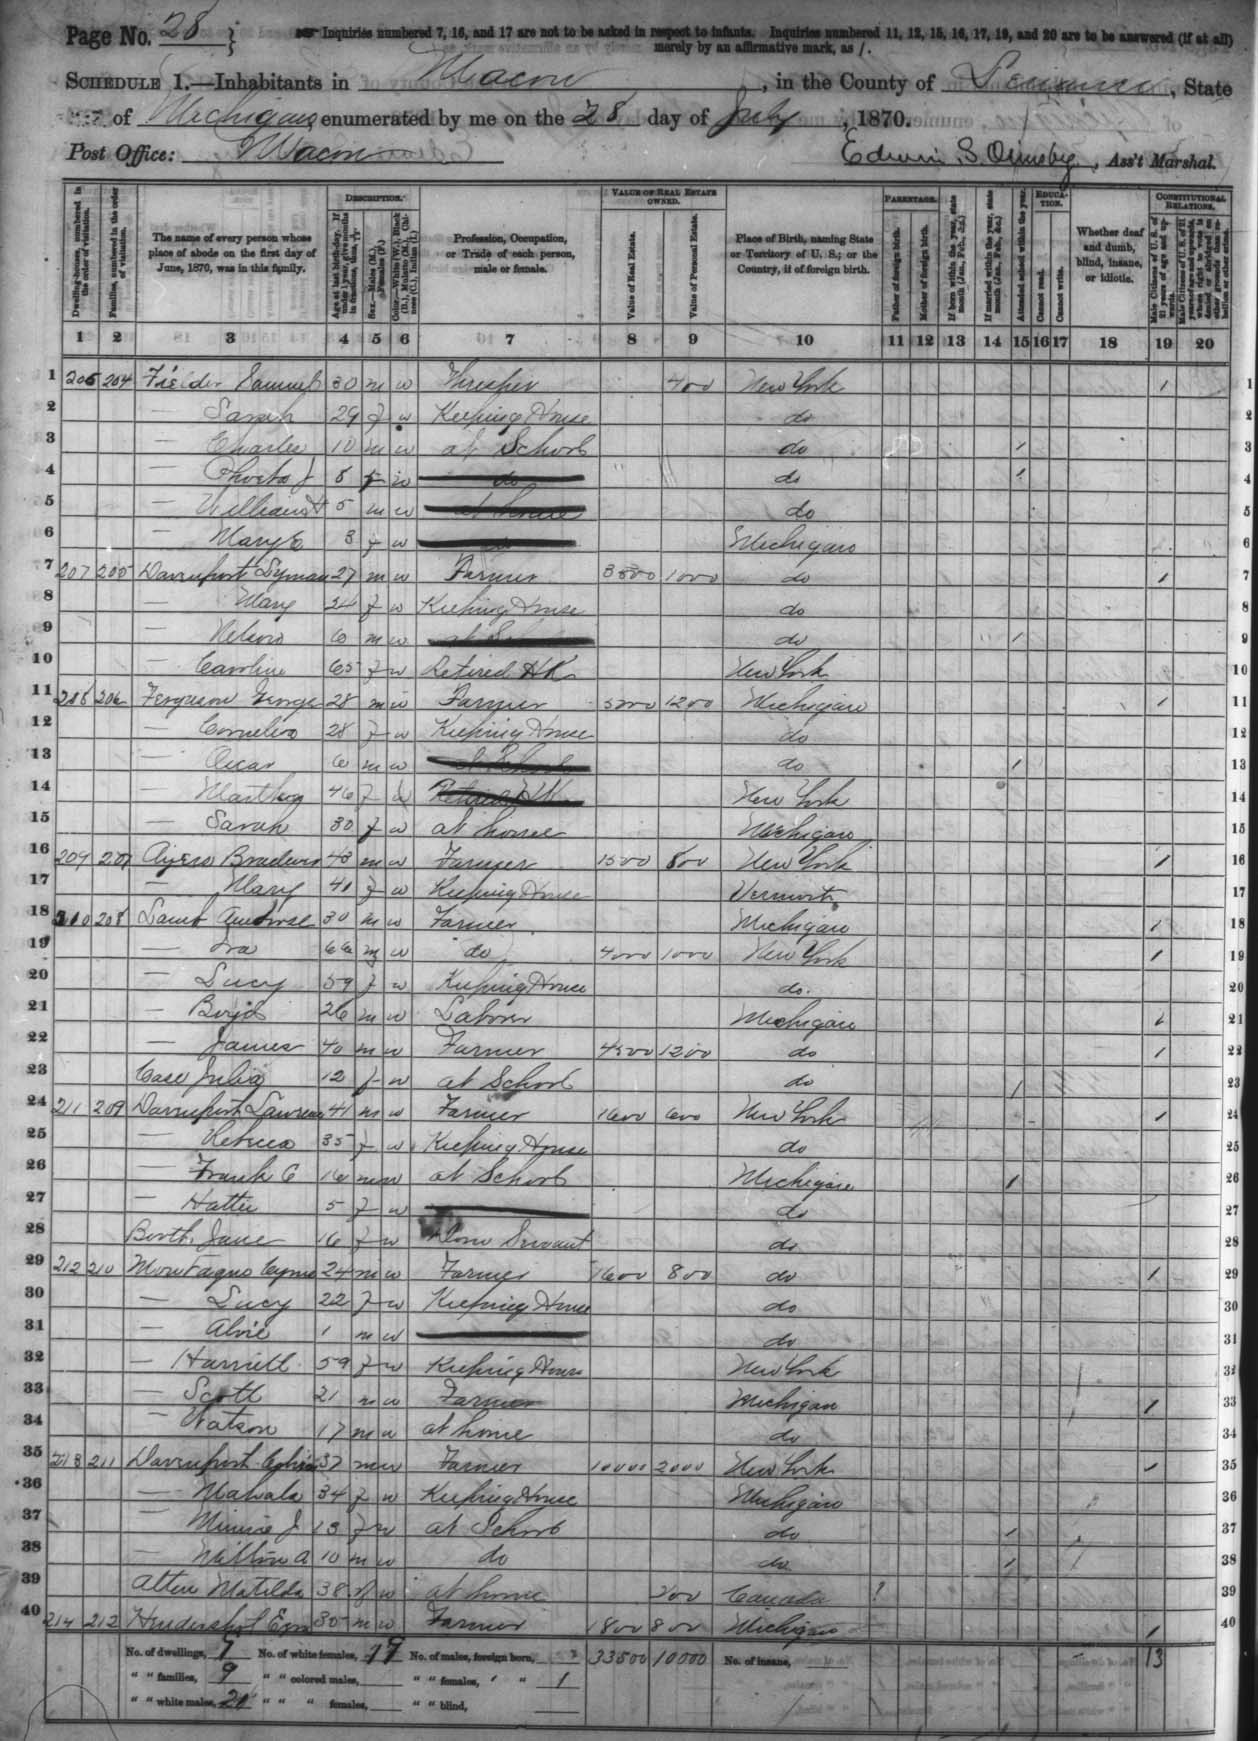 Page No. 28 } Inquiries numbered 7, 16, and 17 are not to be asked in respect to infants. Inquiries numbered 11, 12, 15, 16, 17, 19, and 20 are to be answered (if at all)
merely by an affirmative mark, as /.
SCHEDULE 1.—Inhabitants in Macon, in the County of Lenawee, State
of Michigan, enumerated by me on the 28 day of July, 1870.
Post Office: Macon Edwin S. Ormsby, Ass't Marshal.
Dwelling-houses, numbered in the order of visitation.
Families, numbered in the order of visitation.
The name of every person whose place of abode on the first day of June, 1870, was in this family.
DESCRIPTION.
Age at last birth-day. If under 1 year, give months in fractions, thus,
Sex.—Males (M.), Females (F.)
Color.—White (W.), Black (B.), Mulatto (M.), Chinese (C.), Indian (I.)
Profession, Occupation, or Trade of each person, male or female.
VALUE OF REAL ESTATE OWNED.
Value of Real Estate.
Value of Personal Estate.
Place of Birth, naming State or Territory of U. S.; or the Country, if of foreign birth.
PARENTAGE.
Father of foreign birth.
Mother of foreign birth.
If born within the year, state month (Jan., Feb., &c.)
If married within the year, state month (Jan., Feb., &c.)
Attended school within the year.
EDUCATION.
Cannot read.
Cannot write.
Whether deaf and dumb, blind, insane, or idiotic.
CONSTITUTIONAL RELATIONS.
Male Citizens of U. S. of 21 years of age and upwards.
1 2 3 4 5 6 7 8 9 10 11 12 13 14 15 16 17 18 19 20
1 206 204 Fielder Samuel 30 m w Thresher 400 New York / 1
2 — Sarah 29 f w Keeping House do 2
3 — Charles 10 m w at School do / 3
4 — J 8 f w do do / 4
5 — William H 5 m w at home do 5
6 — Mary E 3 f w do Michigan 6
7 207 205 Davenport Lyman 27 m w Farmer 3500 1000 do / 7
8 — Mary 24 f w Keeping House do 8
9 — Nelson 6 m w at School do / 9
10 — Caroline 65 f w Retired H K New York 10
11 208 206 Ferguson George 28 m w Farmer 5000 1200 Michigan / 11
12 — Cornelia 28 f w Keeping House do 12
13 — Oscar 6 m w at School do / 13
14 — Martha 46 f w Retired H K New York 14
15 — Sarah 30 f w at home Michigan 15
16 209 207 Ayers 43 m w Farmer 1500 800 New York / 16
17 — Mary 41 f w Keeping House Vermont 17
18 210 208 Lamb Ambrose 30 m w Farmer Michigan / 18
19 — Ira 66 m w do 4000 1000 New York / 19
20 — Lucy 59 f w Keeping House do. 20
21 — Boyd 26 m w Laborer Michigan / 21
22 — James 40 m w Farmer 4500 1200 do / 22
23 Case Julia 12 f w at School do / 23
24 211 209 Davenport Lawrence 41 m w Farmer 1600 600 New York / 24
25 — Rebecca 35 f w Keeping House do 25
26 — Frank C 16 m w at School Michigan / 26
27 — Hattie 5 f w do 27
28 Booth Jane 16 f w Dom Servant do 28
29 212 210 Montague Cyrus 24 m w Farmer 1600 800 do / 29
30 — Lucy 22 f w Keeping House do 30
31 — Alvie 1 m w do 31
32 — Harriett 59 f w Keeping House New York 32
33 — Scott 21 m w Farmer Michigan / 33
34 — Watson 17 m w at home do 34
35 213 211 Davenport 37 m w Farmer 10000 2000 New York / 35
36 — Mahala 34 f w Keeping House Michigan 36
37 — Minnie J 13 f w at School do / 37
38 — Milton A 10 m w do do / 38
39 Allen Matilda 38 f w at home 200 Canada 39
40 214 212 Hendershot 35 m w Farmer 1800 800 Michigan / 40
No. of dwellings, 9 No. of white females, 19 No. of males, foreign born, 33500 10000 No. of insane, 13
" " families, 9 " " colored males, " " females, " " 1
" " white males, 21 " " " females, " " blind,